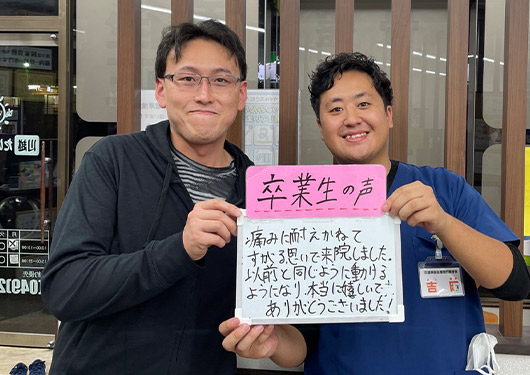 卒業生の声
痛みに耐えかねて
すがる思いで来院しました。
以前と同じように動ける
ようになり、本当に嬉しいです
ありがとうございました!
川越
(049)2